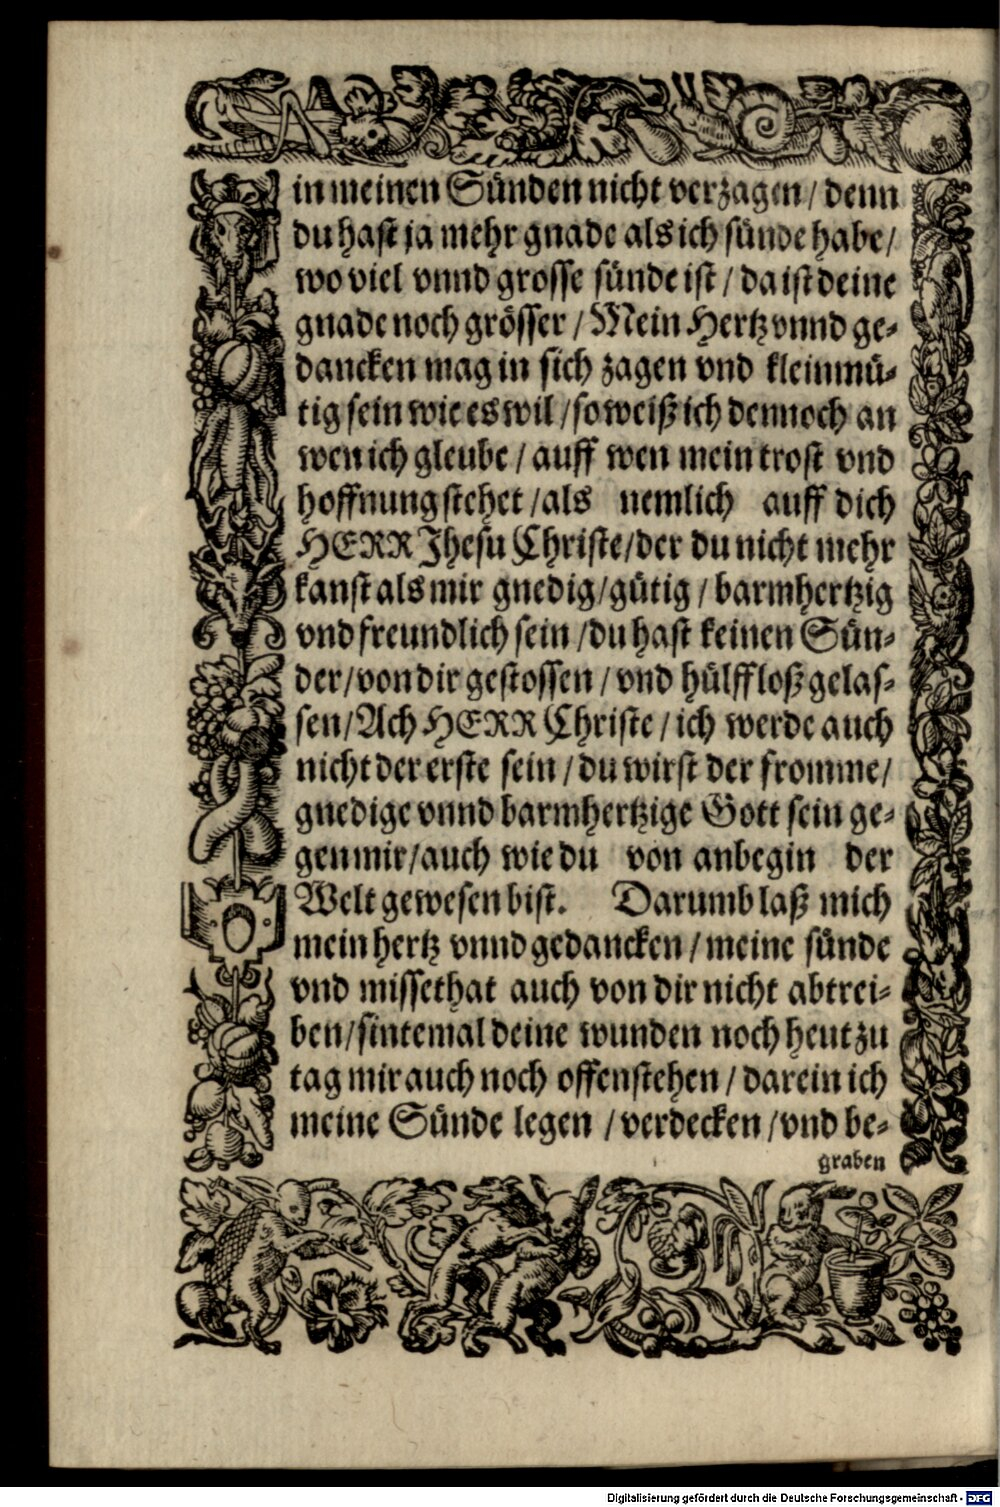 in meinen Sünden nicht verzagen / denn
du hast ja mehr gnade als ich sünde habe /
wo viel vnnd grosse sünde ist / da ist deine
gnade noch grösser / Mein Hertz vnnd ge-
dancken mag in sich zagen vnd kleinmü-
tig sein wie es wil / so weiß ich dennoch an
wen ich gleube / auff wen mein trost vnd
hoffnung stehet / als nemlich auff dich
HERR Jhesu Christe / der du nicht mehr
kanst als mir gnedig / gütig / barmhertzig
vnd freundlich sein / du hast keinen Sün-
der / von dir gestossen / vnd hülffloß gelas-
sen / Ach HERR Christe / ich werde auch
nicht der erste sein / du wirst der fromme /
gnedige vnnd barmhertzige Gott sein ge-
gen mir / auch wie du von anbegin der
Welt gewesen bist. Darumb laß mich
mein hertz vnnd gedancken / meine sünde
vnd missethat auch von dir nicht abtrei-
ben / sintemal deine wunden noch heut zu
tag mir auch noch offenstehen / darein ich
meine Sünde legen / verdecken / vnd be-
graben
Digitalisierung gefördert durch die Deutsche Forschungsgemeinschaft - DFG